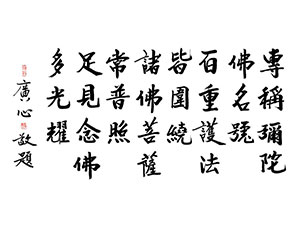 專稱彌陀
佛名號
百重護法
皆圍繞
諸佛菩薩
常普照
足見念佛
多光耀
廣心敬題